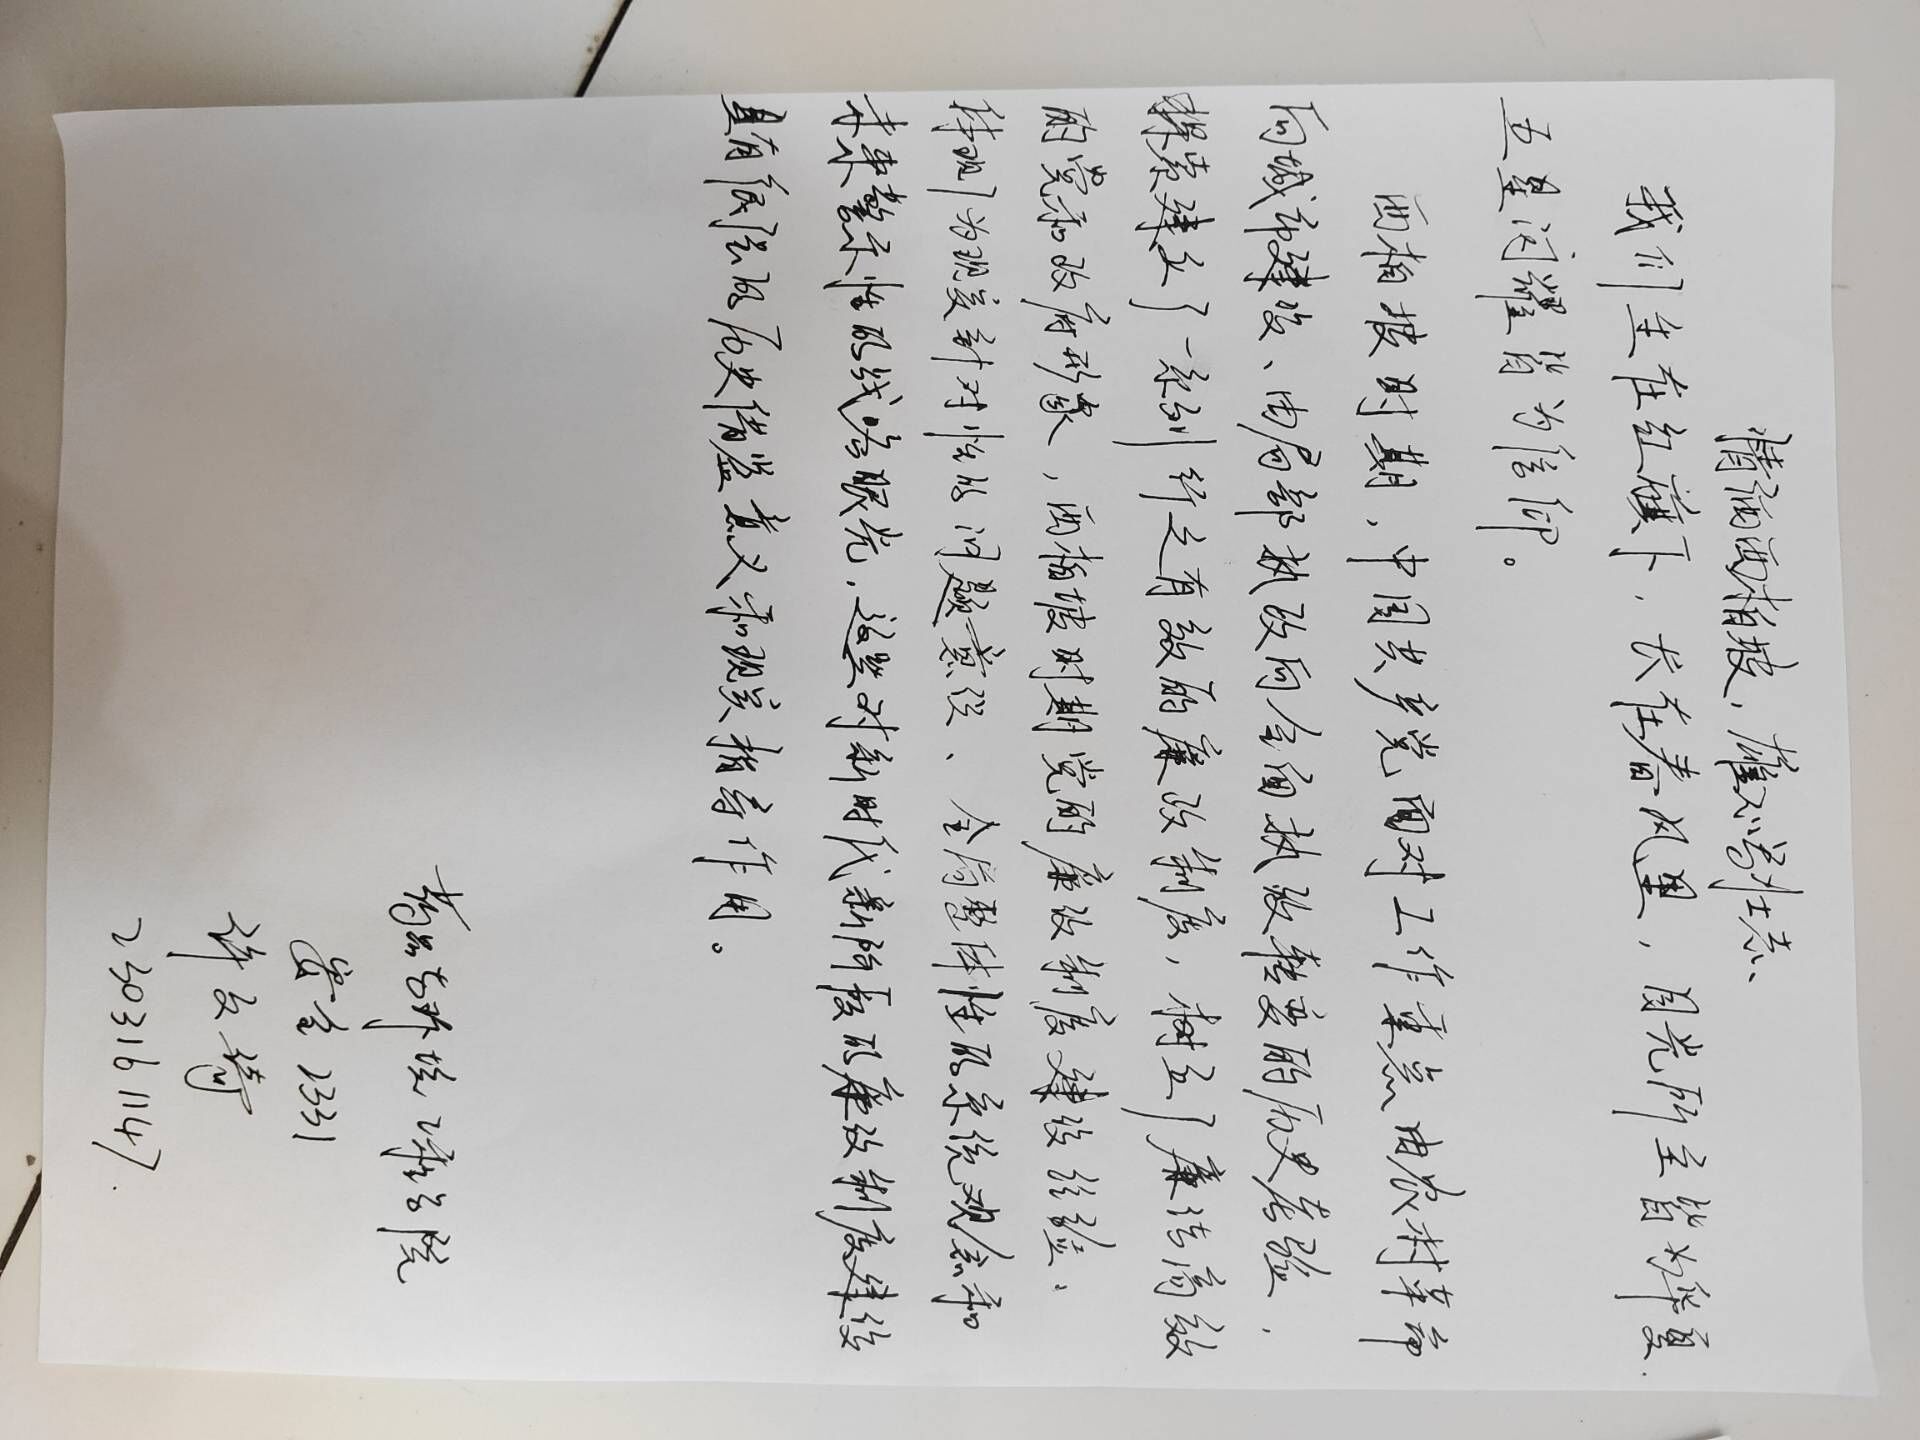 情润西柏坡，葎心寄壮志、
我们生在红旗下，长在春风里，目光所至皆为华夏，
五星闪耀皆为信仰。
西柏坡时期，中国共产党面对工作重点由农村革命
向城市建设、由局部执政向全面执政转变的历史考验，
探索建立了一系列行之有效的廉政制度，树立了廉洁高效
的党和政府形象，西柏坡时期党的廉政制度建设经验，
体现了为现实针对性的问题意识、全局整体性的系统观念和
未来警示性的战略眼光，这些对新时代新阶段的廉政制度建设
具有民法的历史借鉴意义和现实指导作用。
商品与环境工程学院
安全2331
许文绮
2303161147.